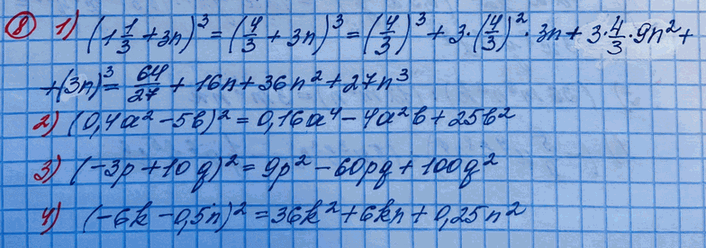 8 1) (1 1/3 + 3n)³ = (4/3 + 3n)³ = (4/3)³ + 3·(4/3)²·3n + 3·4/3·9n² +
+(3n)³ = 64/27 + 16n + 36n² + 27n³
2) (0,4a² - 5b)² = 0,16a⁴ - 4a²b + 25b²
3) (-3p + 10q)² = 9p² - 60pq + 100q²
4) (-6k - 0,5n)² = 36k² + 6kn + 0,25n²